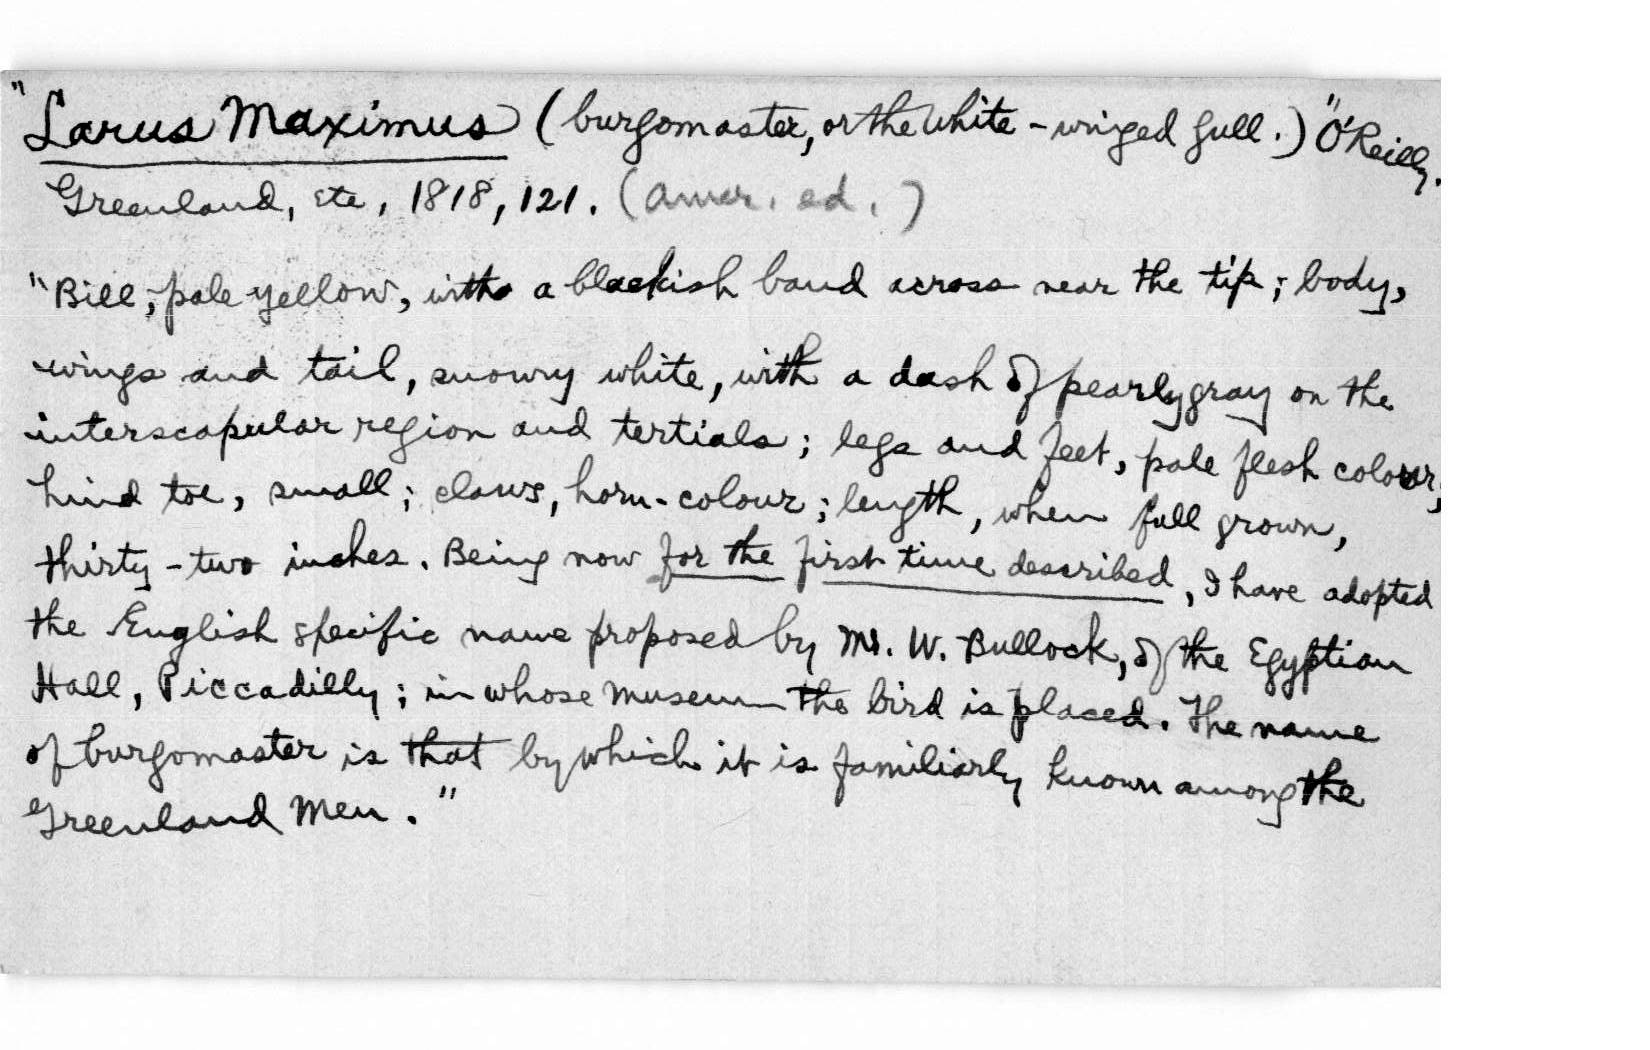 "Larus Maximus (burgomaster, or the White-winged gull.)" O'Reilly.
Greenland, etc, 1818, 121. (Amer. ed.)
"Bill, pale yellow, with a blackish band across near the tip; body,
wings and tail, snowy white, with a dash of pearly gray on the
interscapular region and tertials; legs and feet, pale flesh colour;
hind toe, small; claws, horn-colour; length, when full grown,
thirty-two inches. Being now for the first time described, I have adopted
the English specific name proposed by Mr. W. Bullock, of the Egyptian
Hall, Piccadilly; in whose museum the bird is placed. The name
of burgomaster is that by which it is familiarly known among the
Greenland Men."